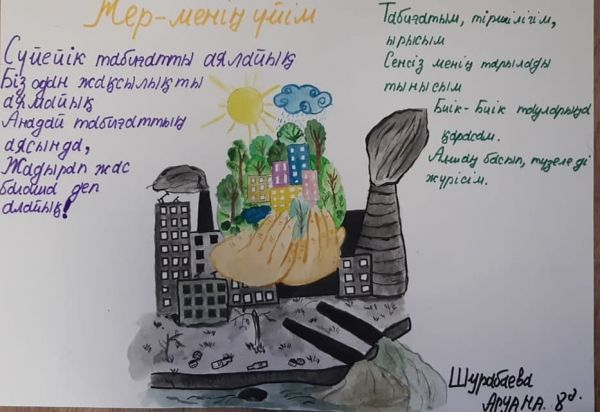 Жер-менің үйім
Сүйейік табиғатты аялайық
Біз одан жақсылықты
аямайық
Анадай табиғаттың
аясында,
Жадырап жас
балаша деп
алайық!
Табиғатым, тіршілігім,
ырысым
Сенсіз менің тарылады
тынысым
Биік-Биік тауларыңа
қарасам.
Алшаң басып, түзеледі
жүрісім.
Шурабаева
Аруана. 8